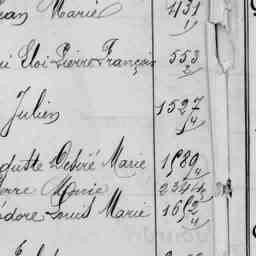 ean Marie 431
ri Eloi Pierre François 553
Julien 1527
guste Désiré Marie 1589
erre Marie 2344
odore Louis Marie 1652